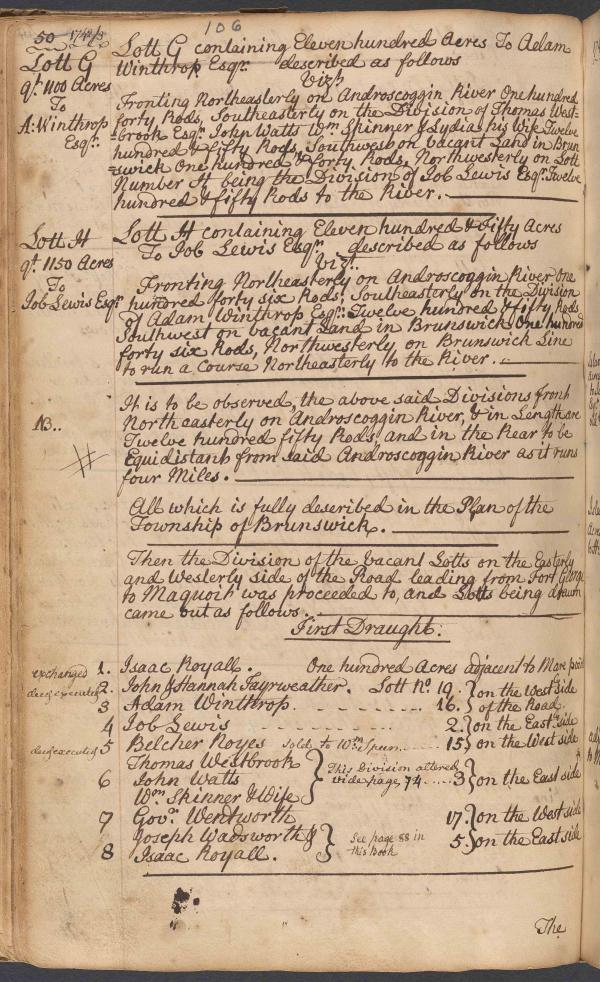 106
50 1742/3
Lott G
qt. 1100 Acres
To
A: Winthrop
Esqr.
Lott G containing Eleven hundred Acres To Adam
Winthrop Esqr. described as follows
Vizt.
Fronting Northeasterly on Androscoggin River One hundred
forty Rods, Southeasterly on the Division of Thomas West=
=brook Esqr. John Watts Wm. Skinner & Lydia his Wife Twelve
hundred & fifty Rods, Southwest on Vacant Land in Brun
=swick One hundred & forty Rods, Northwesterly on Lott
Number H being the Division of Job Lewis Esqr. Twelve
hundred & fifty Rods to the River.
Lott H
qt. 1150 Acres
To
Job Lewis Esqr.
Lott H containing Eleven hundred & Fifty Acres
To Job Lewis Esqr. described as follows
Vizt.
Fronting Northeasterly on Androscoggin River One
hundred forty six Rods, Southeasterly on the Division
of Adam Winthrop Esqr. Twelve hundred & fifty Rods
Southwest on Vacant Land in Brunswick One hundred
forty six Rods, Northwesterly on Brunswick Line
to run a Course Northeasterly to the River.
NB..
It is to be observed, the above said Divisions front
Northeasterly on Androscoggin River, & in Length are
Twelve hundred fifty Rods, and in the Rear to be
Equidistant from said Androscoggin River as it runs
four Miles.
All which is fully described in the Plan of the
Township of Brunswick.
Then the Division of the vacant Lotts on the Easterly
and Westerly side of the Road leading from Fort George
to Maquoit was proceeded to, and Lotts being drawn
came out as follows.
First Draught.
exchanged 1. Isaac Royall. One hundred Acres adjacent to Mare point
deed executed 2. John & Hannah Fayrweather. Lott No. 19. } on the West side
3 Adam Winthrop. 16. } of the Road.
4 Job Lewis 2. } on the East side
deed executed 5 Belcher Noyes sold to Wm. Spear 15 } on the West side
Thomas Westbrook
6 John Watts } This Division altered vide page 74 3 } on the East side
Wm. Skinner & Wife
7 Govr. Wentworth 17. } on the West side
Joseph Wadsworth & } See page 88 in 5. } on the East side
8 Isaac Royall. this Book
The